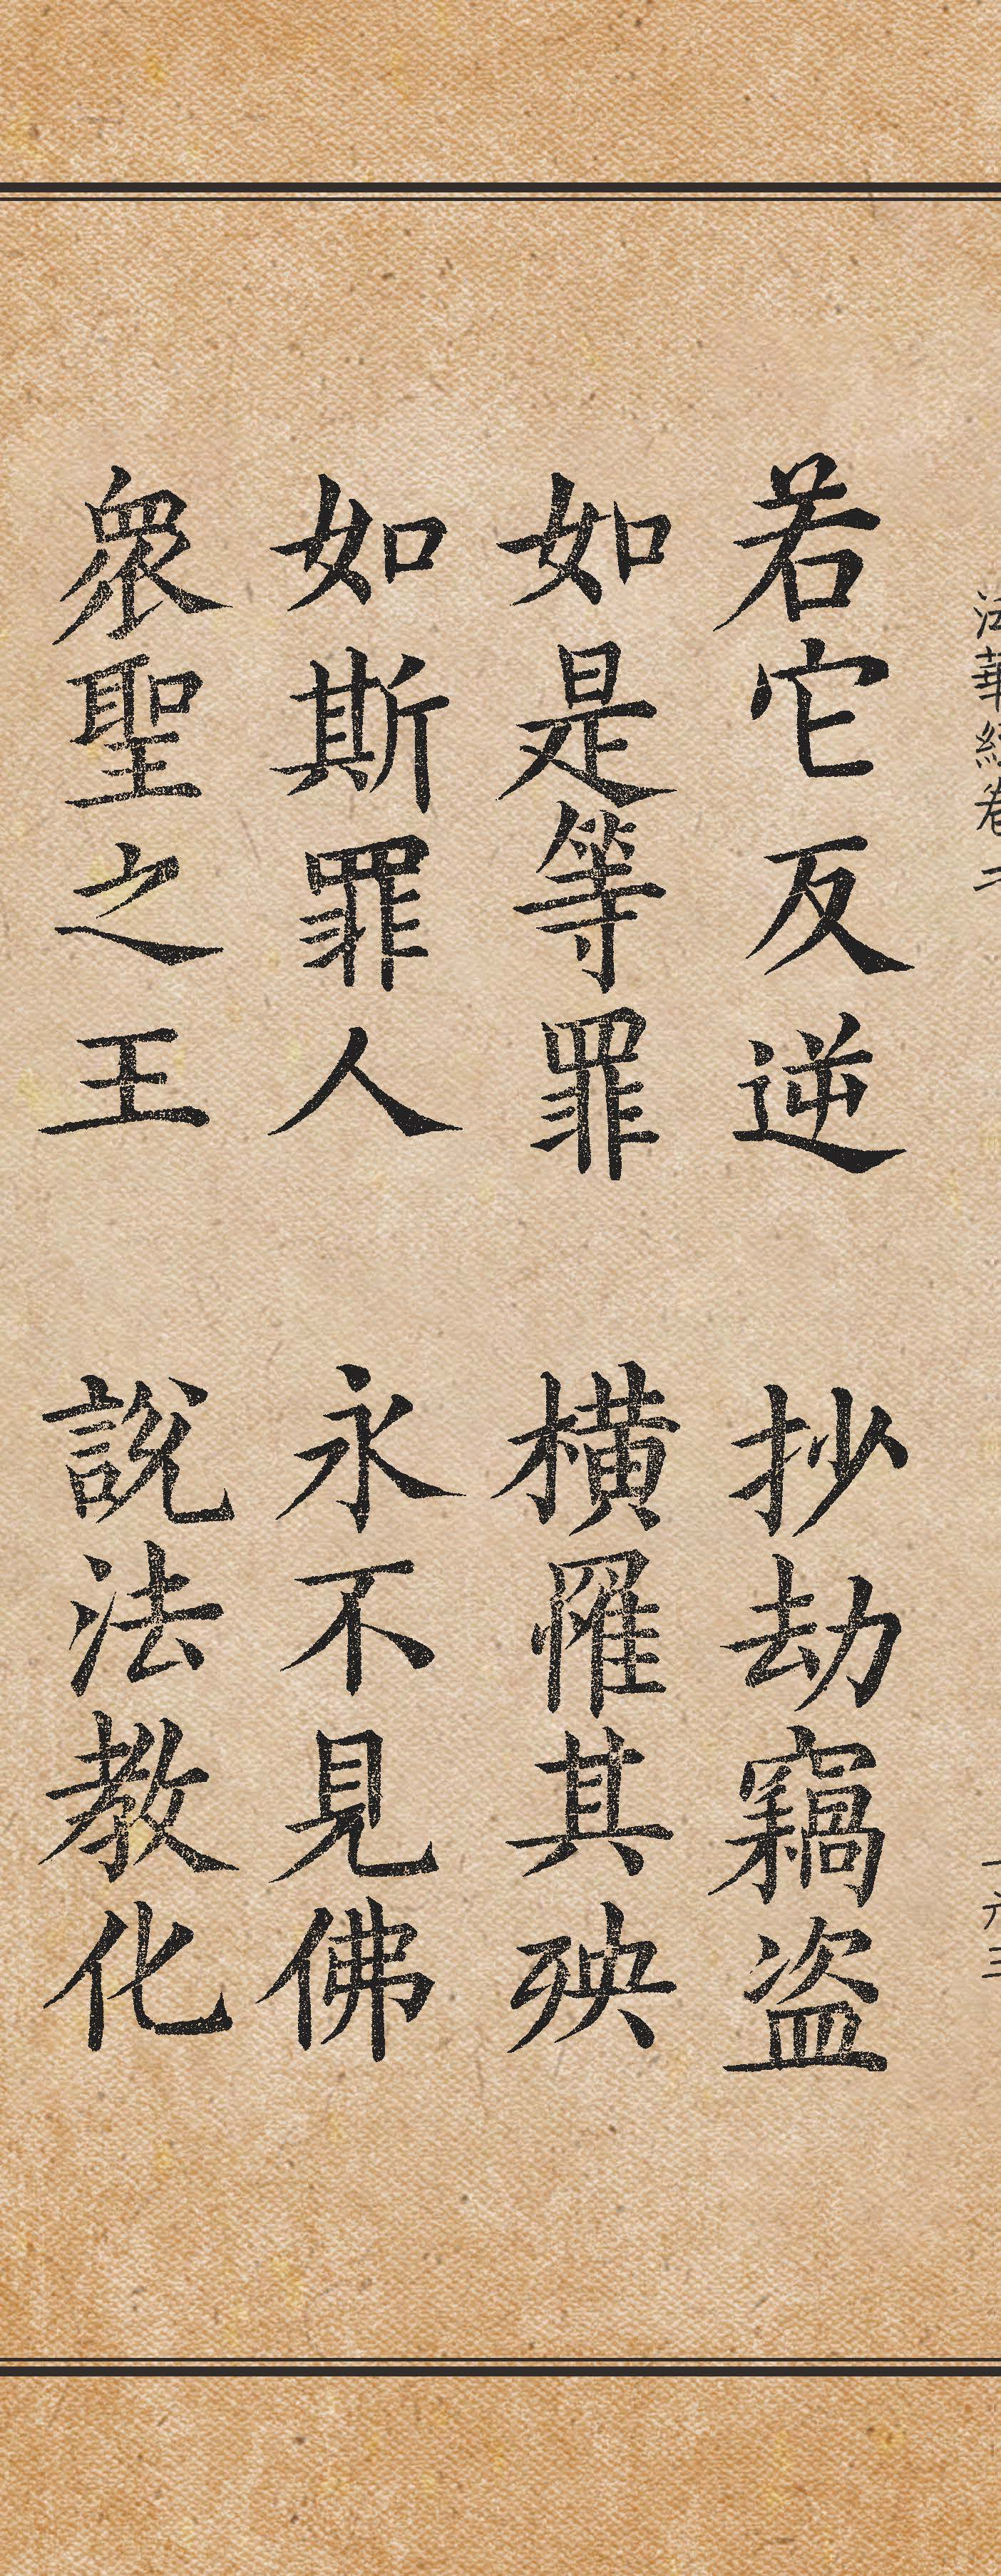 法華經卷二
若它反逆 抄劫竊盜
如是等罪 橫罹其殃
如斯罪人 永不見佛
衆聖之王 說法教化